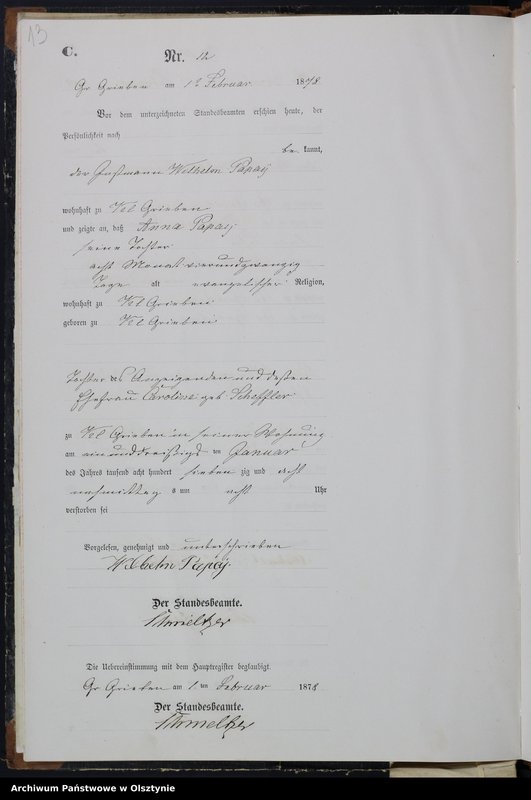 13
C.
Nr. 12
Gr Grieben am 1ⁿ Februar 1878
Vor dem unterzeichneten Standesbeamten erschien heute, der
Persönlichkeit nach
be kannt,
der Instmann Wilhelm Papay
wohnhaft zu Kl Grieben
und zeigte an, daß Anna Papay
seine Tochter
acht Monat vierundzwanzig
Tage alt evangelischer Religion,
wohnhaft zu Kl Grieben
geboren zu Kl Grieben
Tochter des Anzeigenden und dessen
Ehefrau Caroline geb. Scheffler
zu Kl Grieben in seiner Wohnung
am einunddreißigst en Januar
des Jahres tausend acht hundert sieben zig und acht
nachmittag s um acht Uhr
verstorben sei
Vorgelesen, genehmigt und unterschrieben
Wilhelm Papay.
Der Standesbeamte.
Die Uebereinstimmung mit dem Hauptregister beglaubigt
Gr Grieben am 1. ten Februar 1878
Der Standesbeamte.
Archiwum Państwowe w Olsztynie